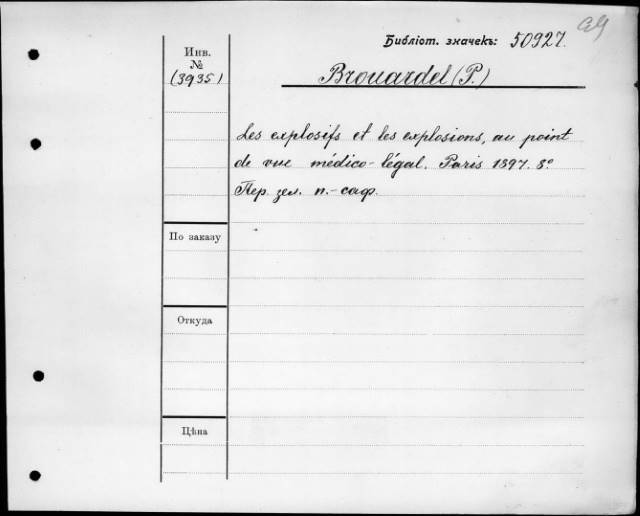 Библіот. значекъ: 50927.
Инв.
№
(3935)
Brouardel (P.)
Les explosifs et les explosions, au point
de vue médico-légal. Paris 1897. 8º
Пер. зел. п.-саф.
По заказу
Откуда
Цѣна